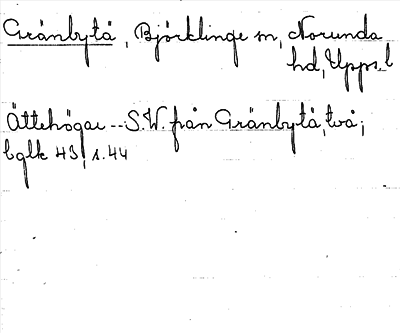 Gränbytå, Björklinge sn, Norunda
hd, Upps. l
Ättehögar -- S.W. från Gränbytå, två;
bglk 43, s. 44